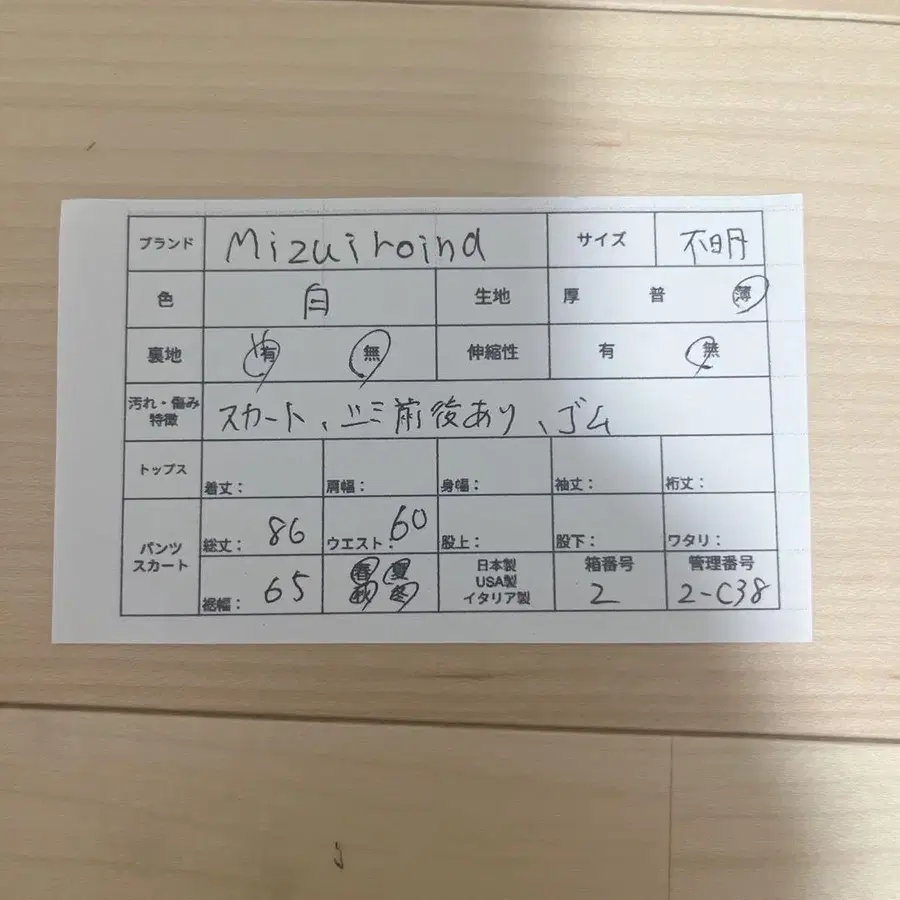 ブランド Mizuiroind サイズ 不明
色 白 生地 厚 普 薄
裏地 有 無 伸縮性 有 無
汚れ・傷み
特徴 スカート、 前後あり、ゴム
トップス 着丈: 肩幅: 身幅: 袖丈: 裄丈:
パンツ
スカート
総丈: 86 ウエスト: 60 股上: 股下: ワタリ:
裾幅: 65 春 夏 秋 冬
日本製
USA製
イタリア製
箱番号
2
管理番号
2-C38